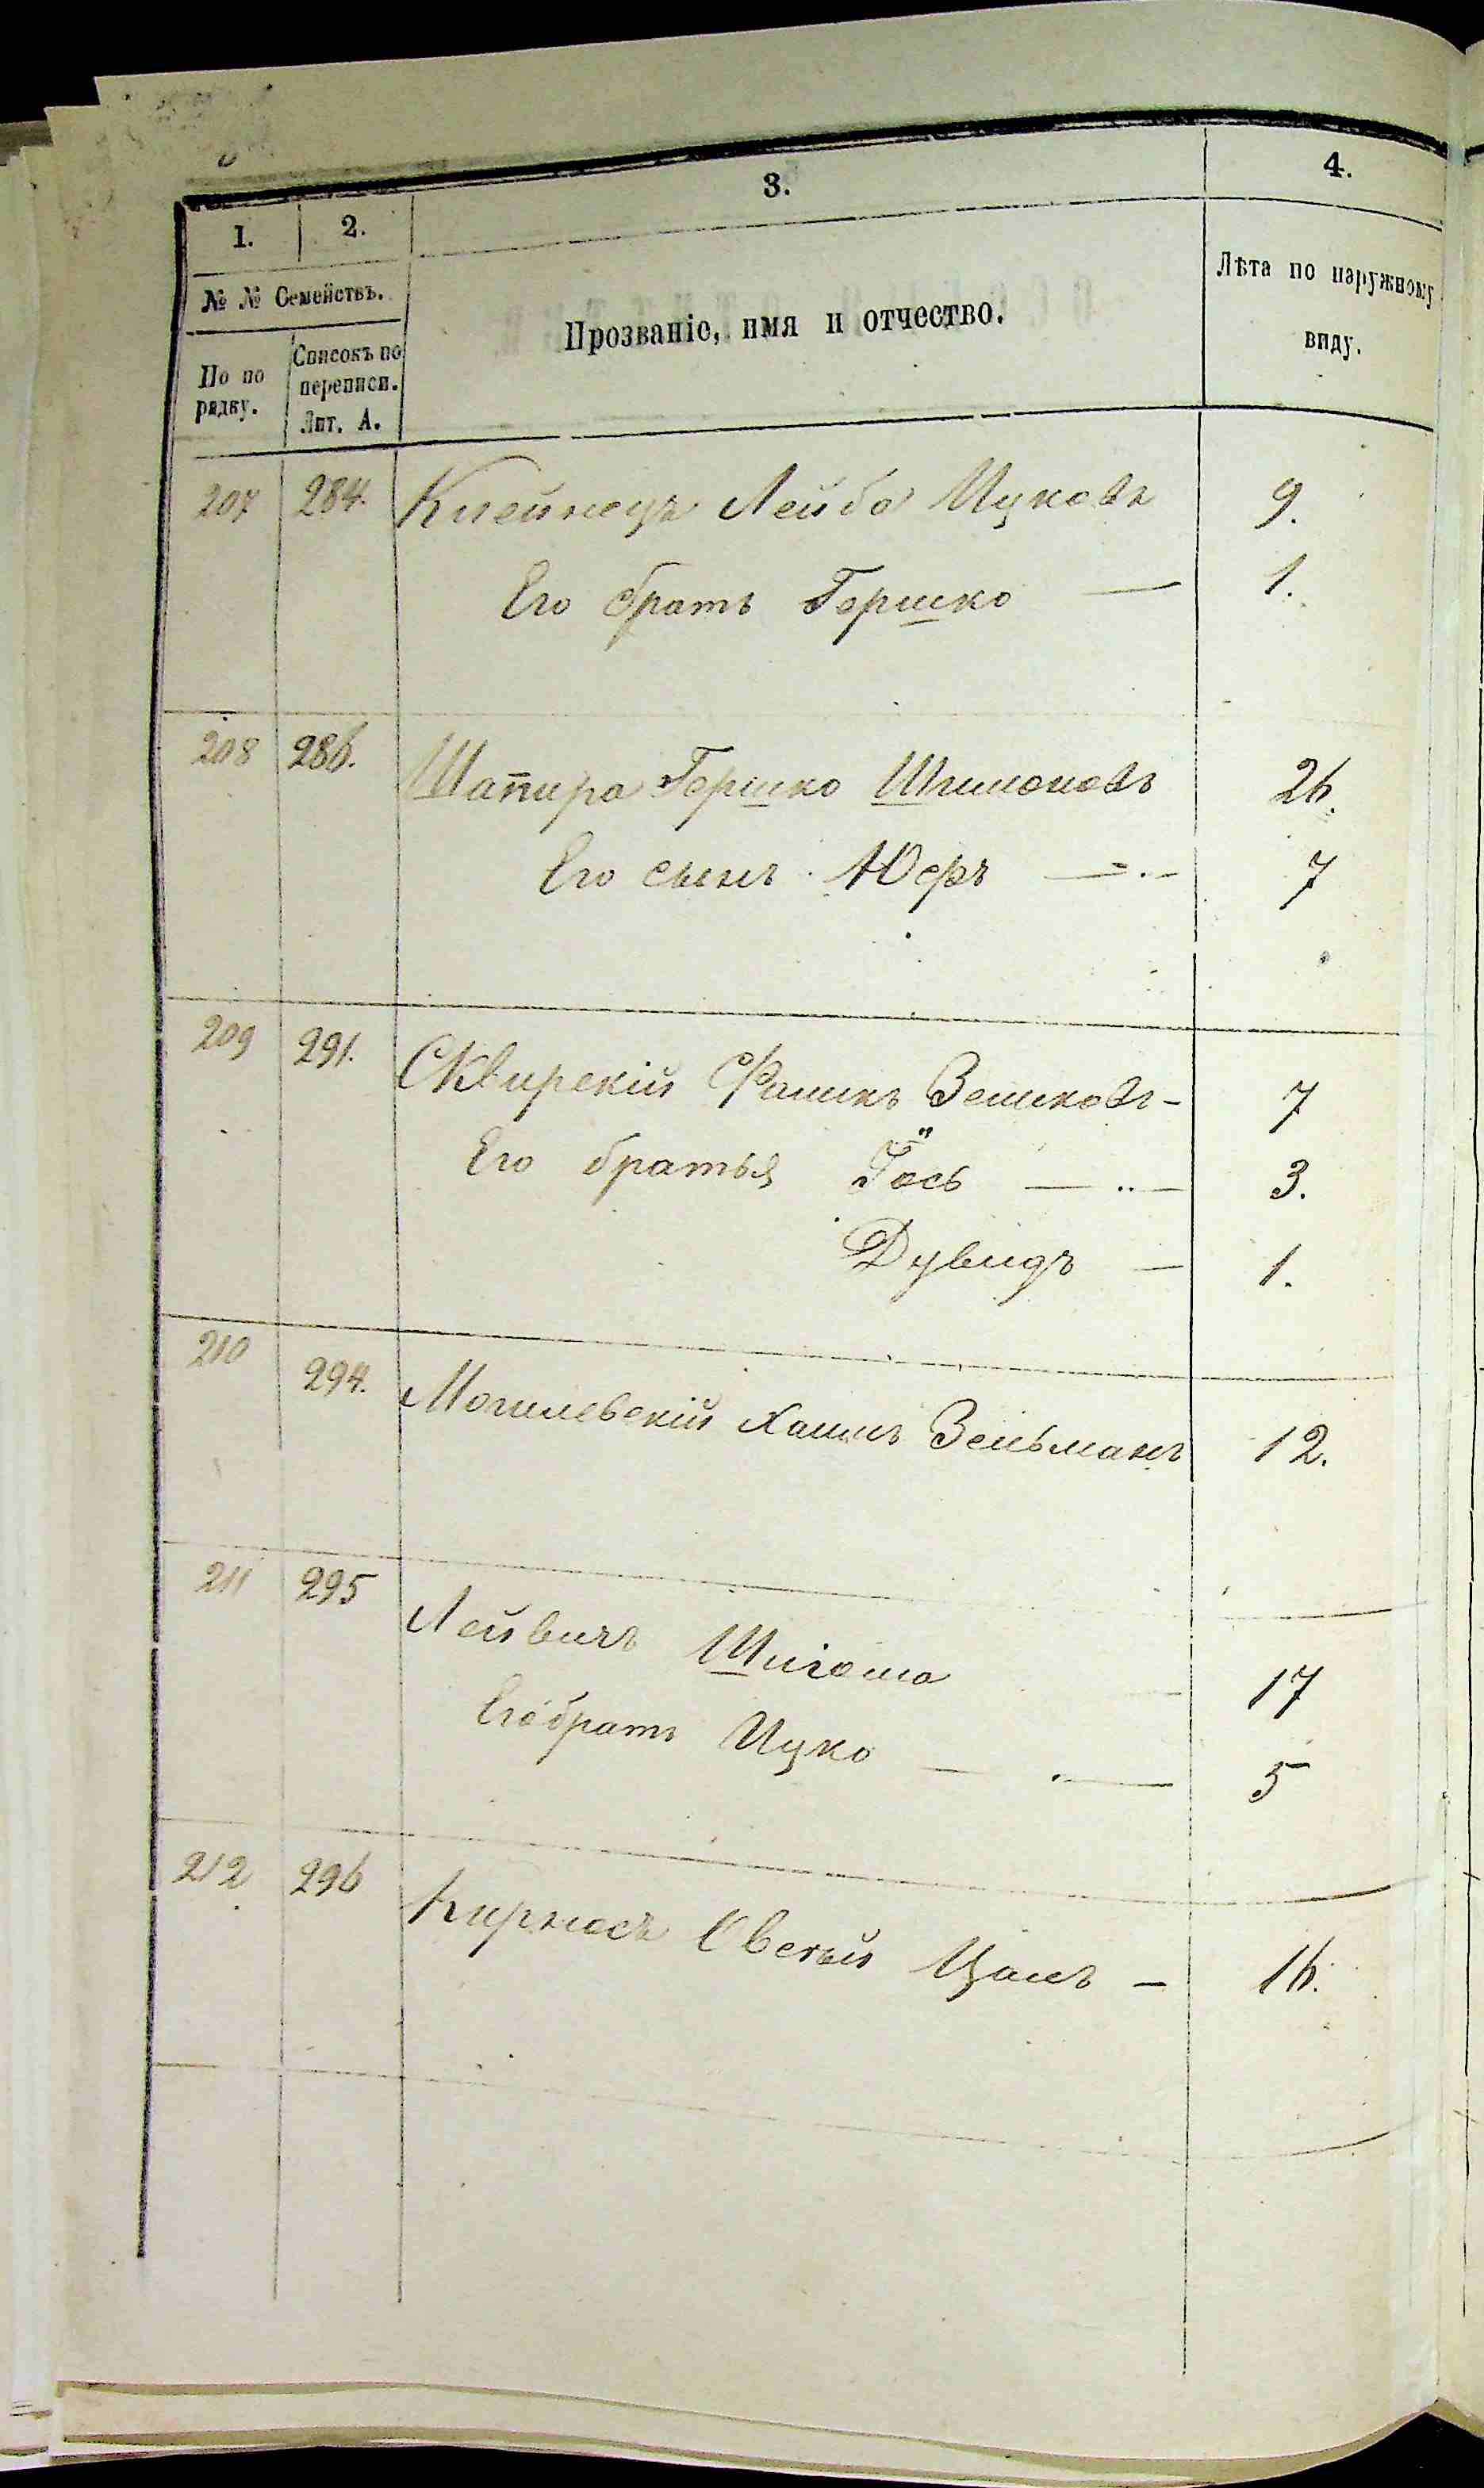 1. 2. 3. 4.
№ № Семействъ.
По по
рядку.
Списокъ по
переписи.
Лит. А.
Прозваніе, имя и отчество.
Лѣта по наружному
виду.
207 284. Клейнецъ Лейба Ицковъ 9.
Его братъ Гершко — 1.
208 286. Шапира Гершко Шлимоновъ 26.
Его сынъ Юеръ — 7
209 291. Сквирскій Фаликъ Зеликовъ - 7
Его братья Iось — " — 3.
Дувидъ — 1.
210 294. Могилевскій Хаимъ Зельманъ 12.
211 295 Лейвичъ Шлiома 17
Его братъ Ицко — 5
212 296 Кирносъ Овсѣй Цаль — 16.